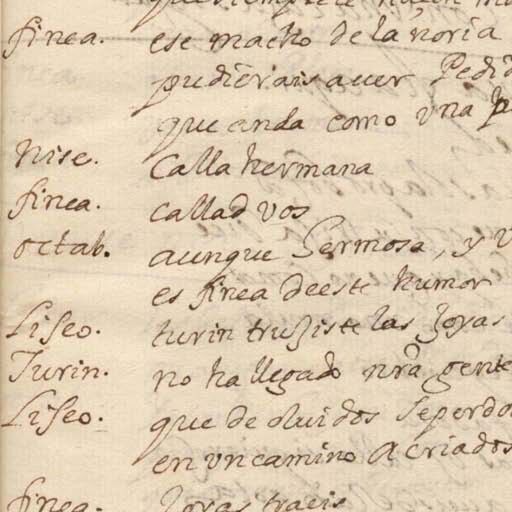 finea. ese macho de la noria
pudierais auer Pedid
que anda como vna
Nise. Calla hermana
finea. callad vos
octab. aunque hermosa, y V
es finea de este humor
Liseo. turin trujiste las Joyas
Turin. no ha llegado nrã gente
Liseo. que de oluidos Seperdo
en vn camino A criados
finea. Joyas traeis